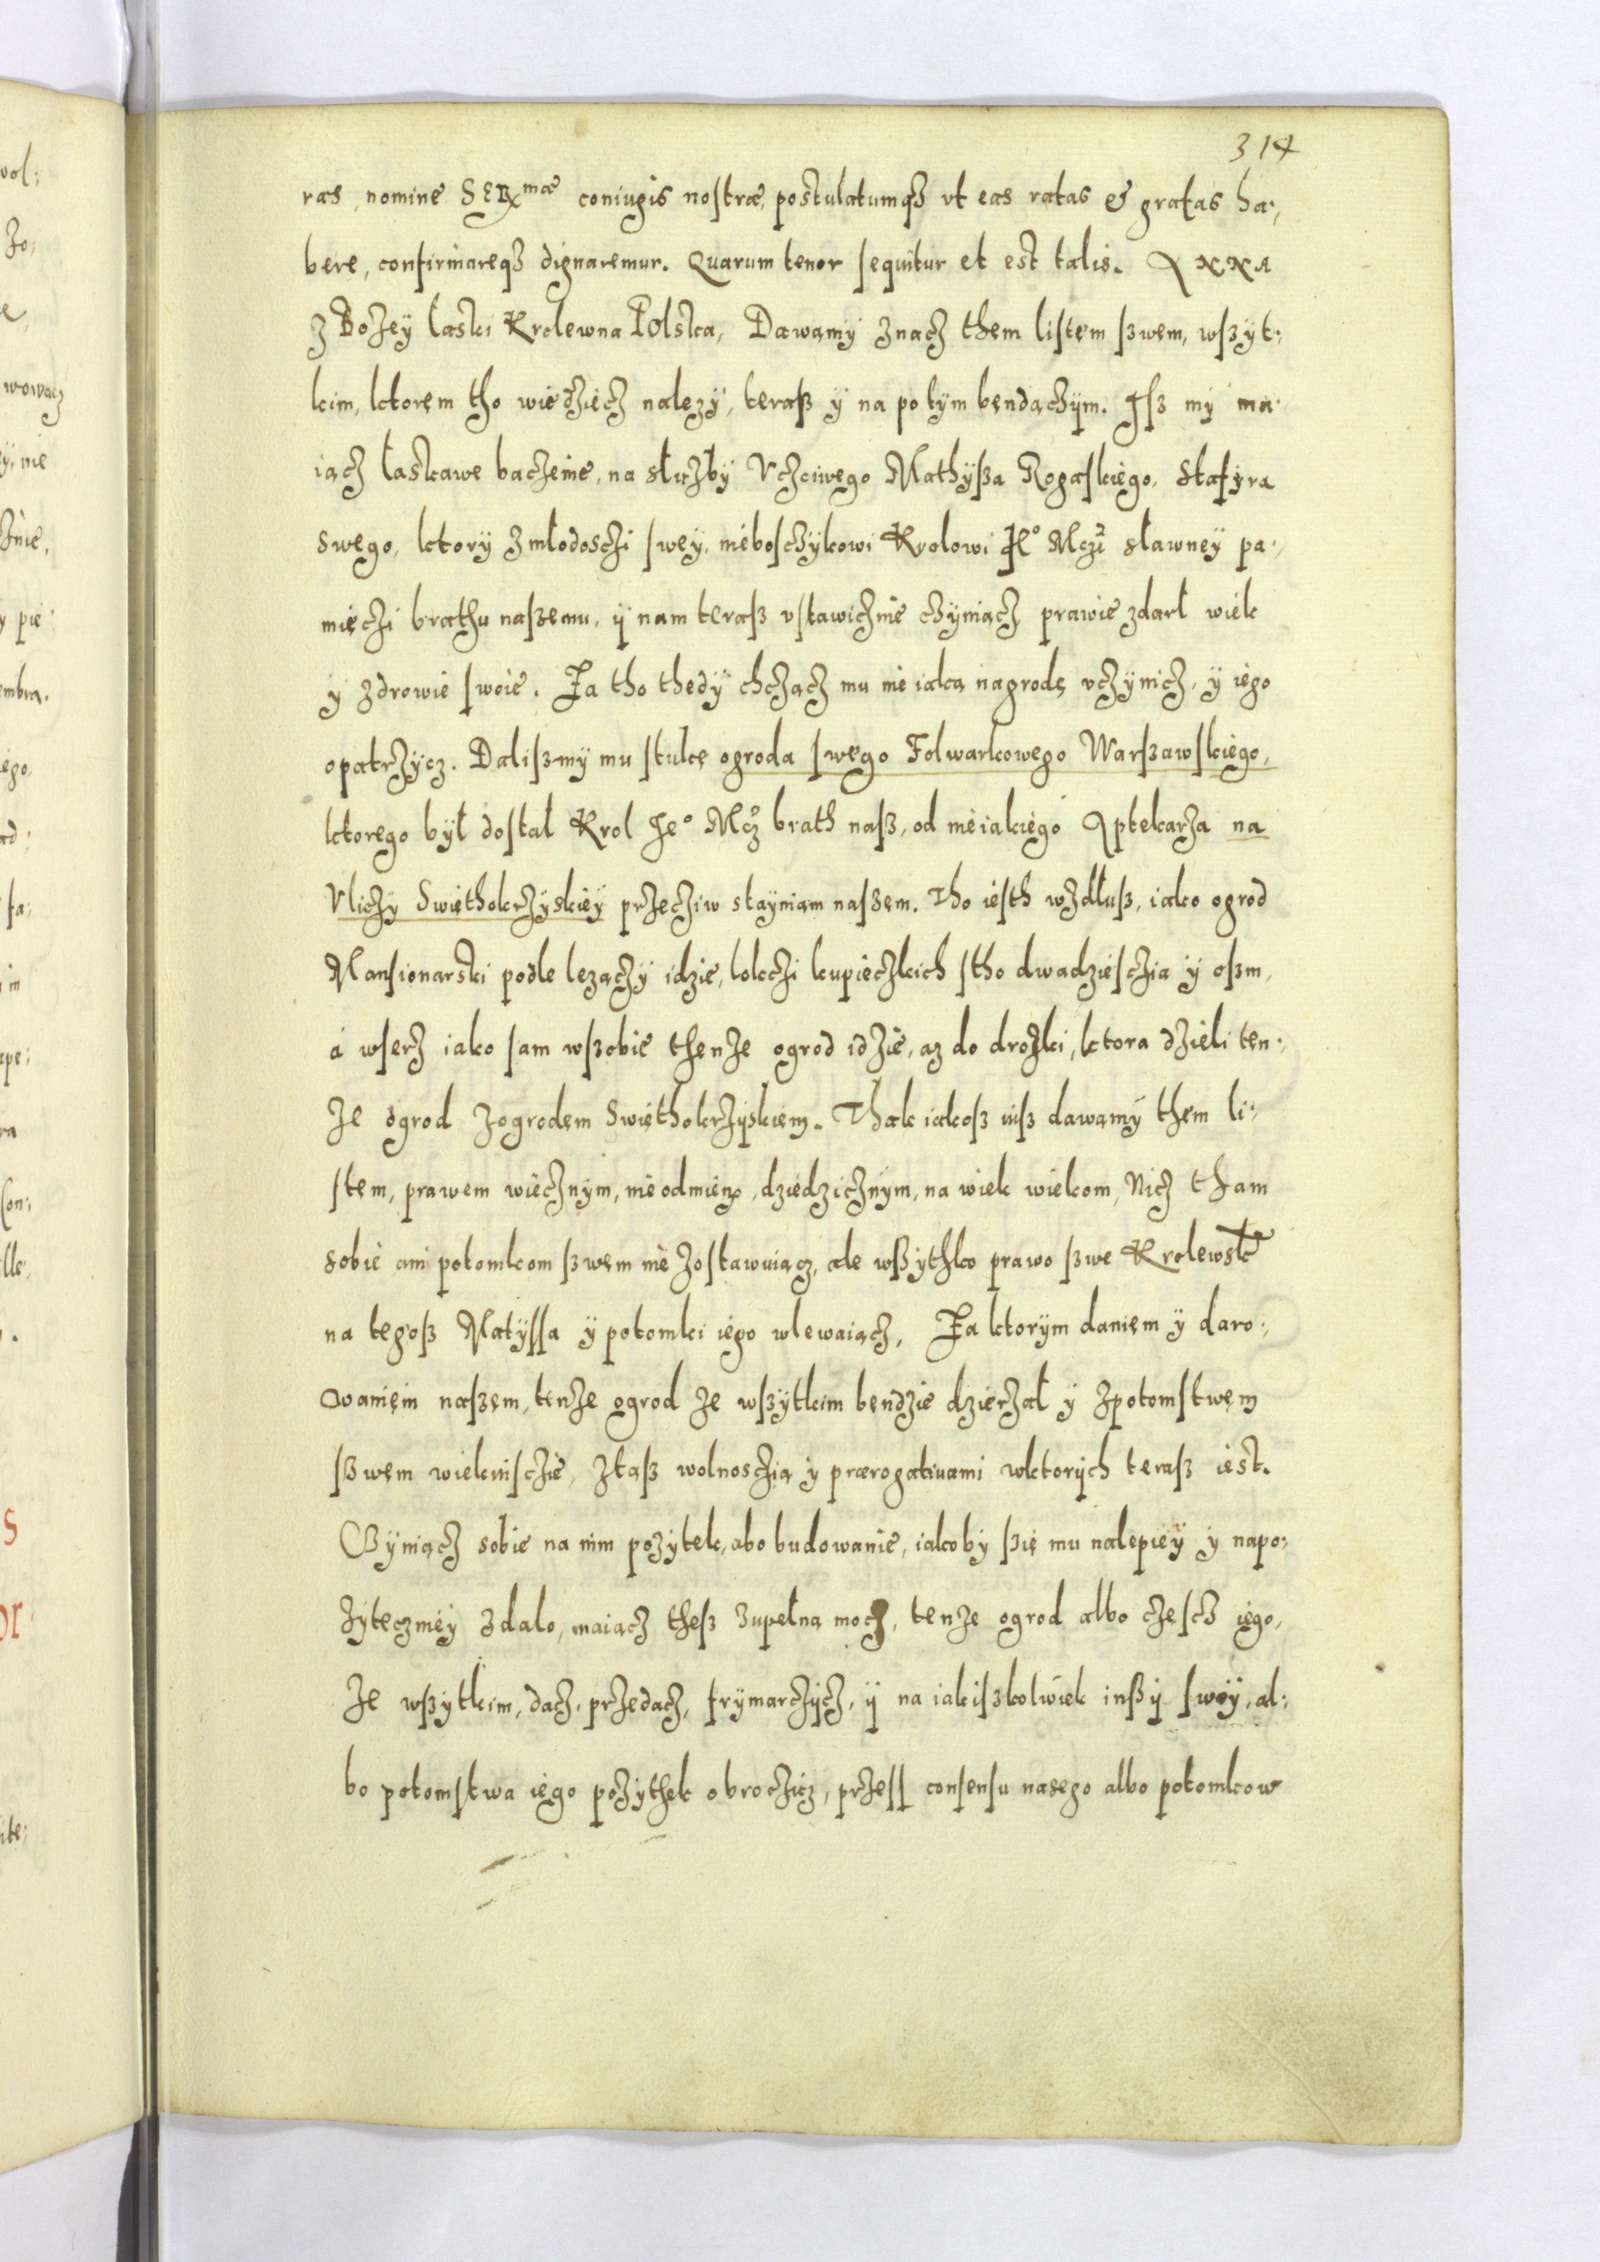 314
ras, nomine SERmæ coniugis nostræ, postulatumqȝ vt eas ratas & gratas ha:,
bere, confirmareqȝ dignaremur. Quarum tenor sequitur et est talis. ANNA
z Bożey łaski Krolewna Polska, Dawamy znacz them listem sżwem, wszyt:
kim, ktorem tho wiedzięcz nalezy, teraß y na potym bendączym. Iß my ma:
iącz łaskawe baczenie, na służby Vczciwego Mathyßa Rogaskiego, Stafyra
swego, ktory z młodosczi swey, nieboszczykowi Krolowi Je° Mczi sławney pa:,
mięczi brathu naszemu, y nam teraß vstawicznie czyniącz prawie zdarł wiek
y zdrowie swoie. Za tho thedy chcząc mu nieiaką nagrodę vczynicz, y iego
opatrzycz. Daliszmy mu stukę ogroda swego Folwarkowego Warszawskiego,
ktorego był dostał Krol Je° Mcz brath naß, od nieiakiego Aptekarza na
Vliczy Swiętokrzyskiey przecziw stayniam naszem. Tho iesth wzdłuß, iako ogrod
Mansionarski podle lezączy idzie, łokczi kupieczkich stho dwadziesczia y oszm,
á wserz iako sam wszobie thenże ogrod idzie, az do drożki, ktora dzieli ten:,
że ogrod z ogrodem Swiętokrzyskiem. Thak iakoß iuß dawamy them li:
stem, prawem wiecznym, nieodmięno, dziedzicznym, na wiek wiekom, Nicz tham
sobie ani potomkom szwem nie zostawuiącz, ale wßythko prawo szwe Krolewskie
na tegoß Matyssa y potomki iego wlewaiącz, Za ktorym daniem y daro:,
waniem naszem, tenże ogrod ze wszytkim bendzie dzierżał y z potomstwem
szwem wiekuisczie, z taß wolnosczią y prærogatiuami wktorych teraß iest.
Czyniącz sobie na nim pożytek, abo budowanie, iakoby szię mu nalepiey y napo:
żyteczniey zdało, maiącz theß zupełną mocz, tenże ogrod albo częscz iego,
że wszytkim, dacz, przedacz, frymarczycz, y na iakiszkolwiek inßy swoy, al:
bo potomstwa iego pożythek obroczicz, przess consensu naszego albo potomkow